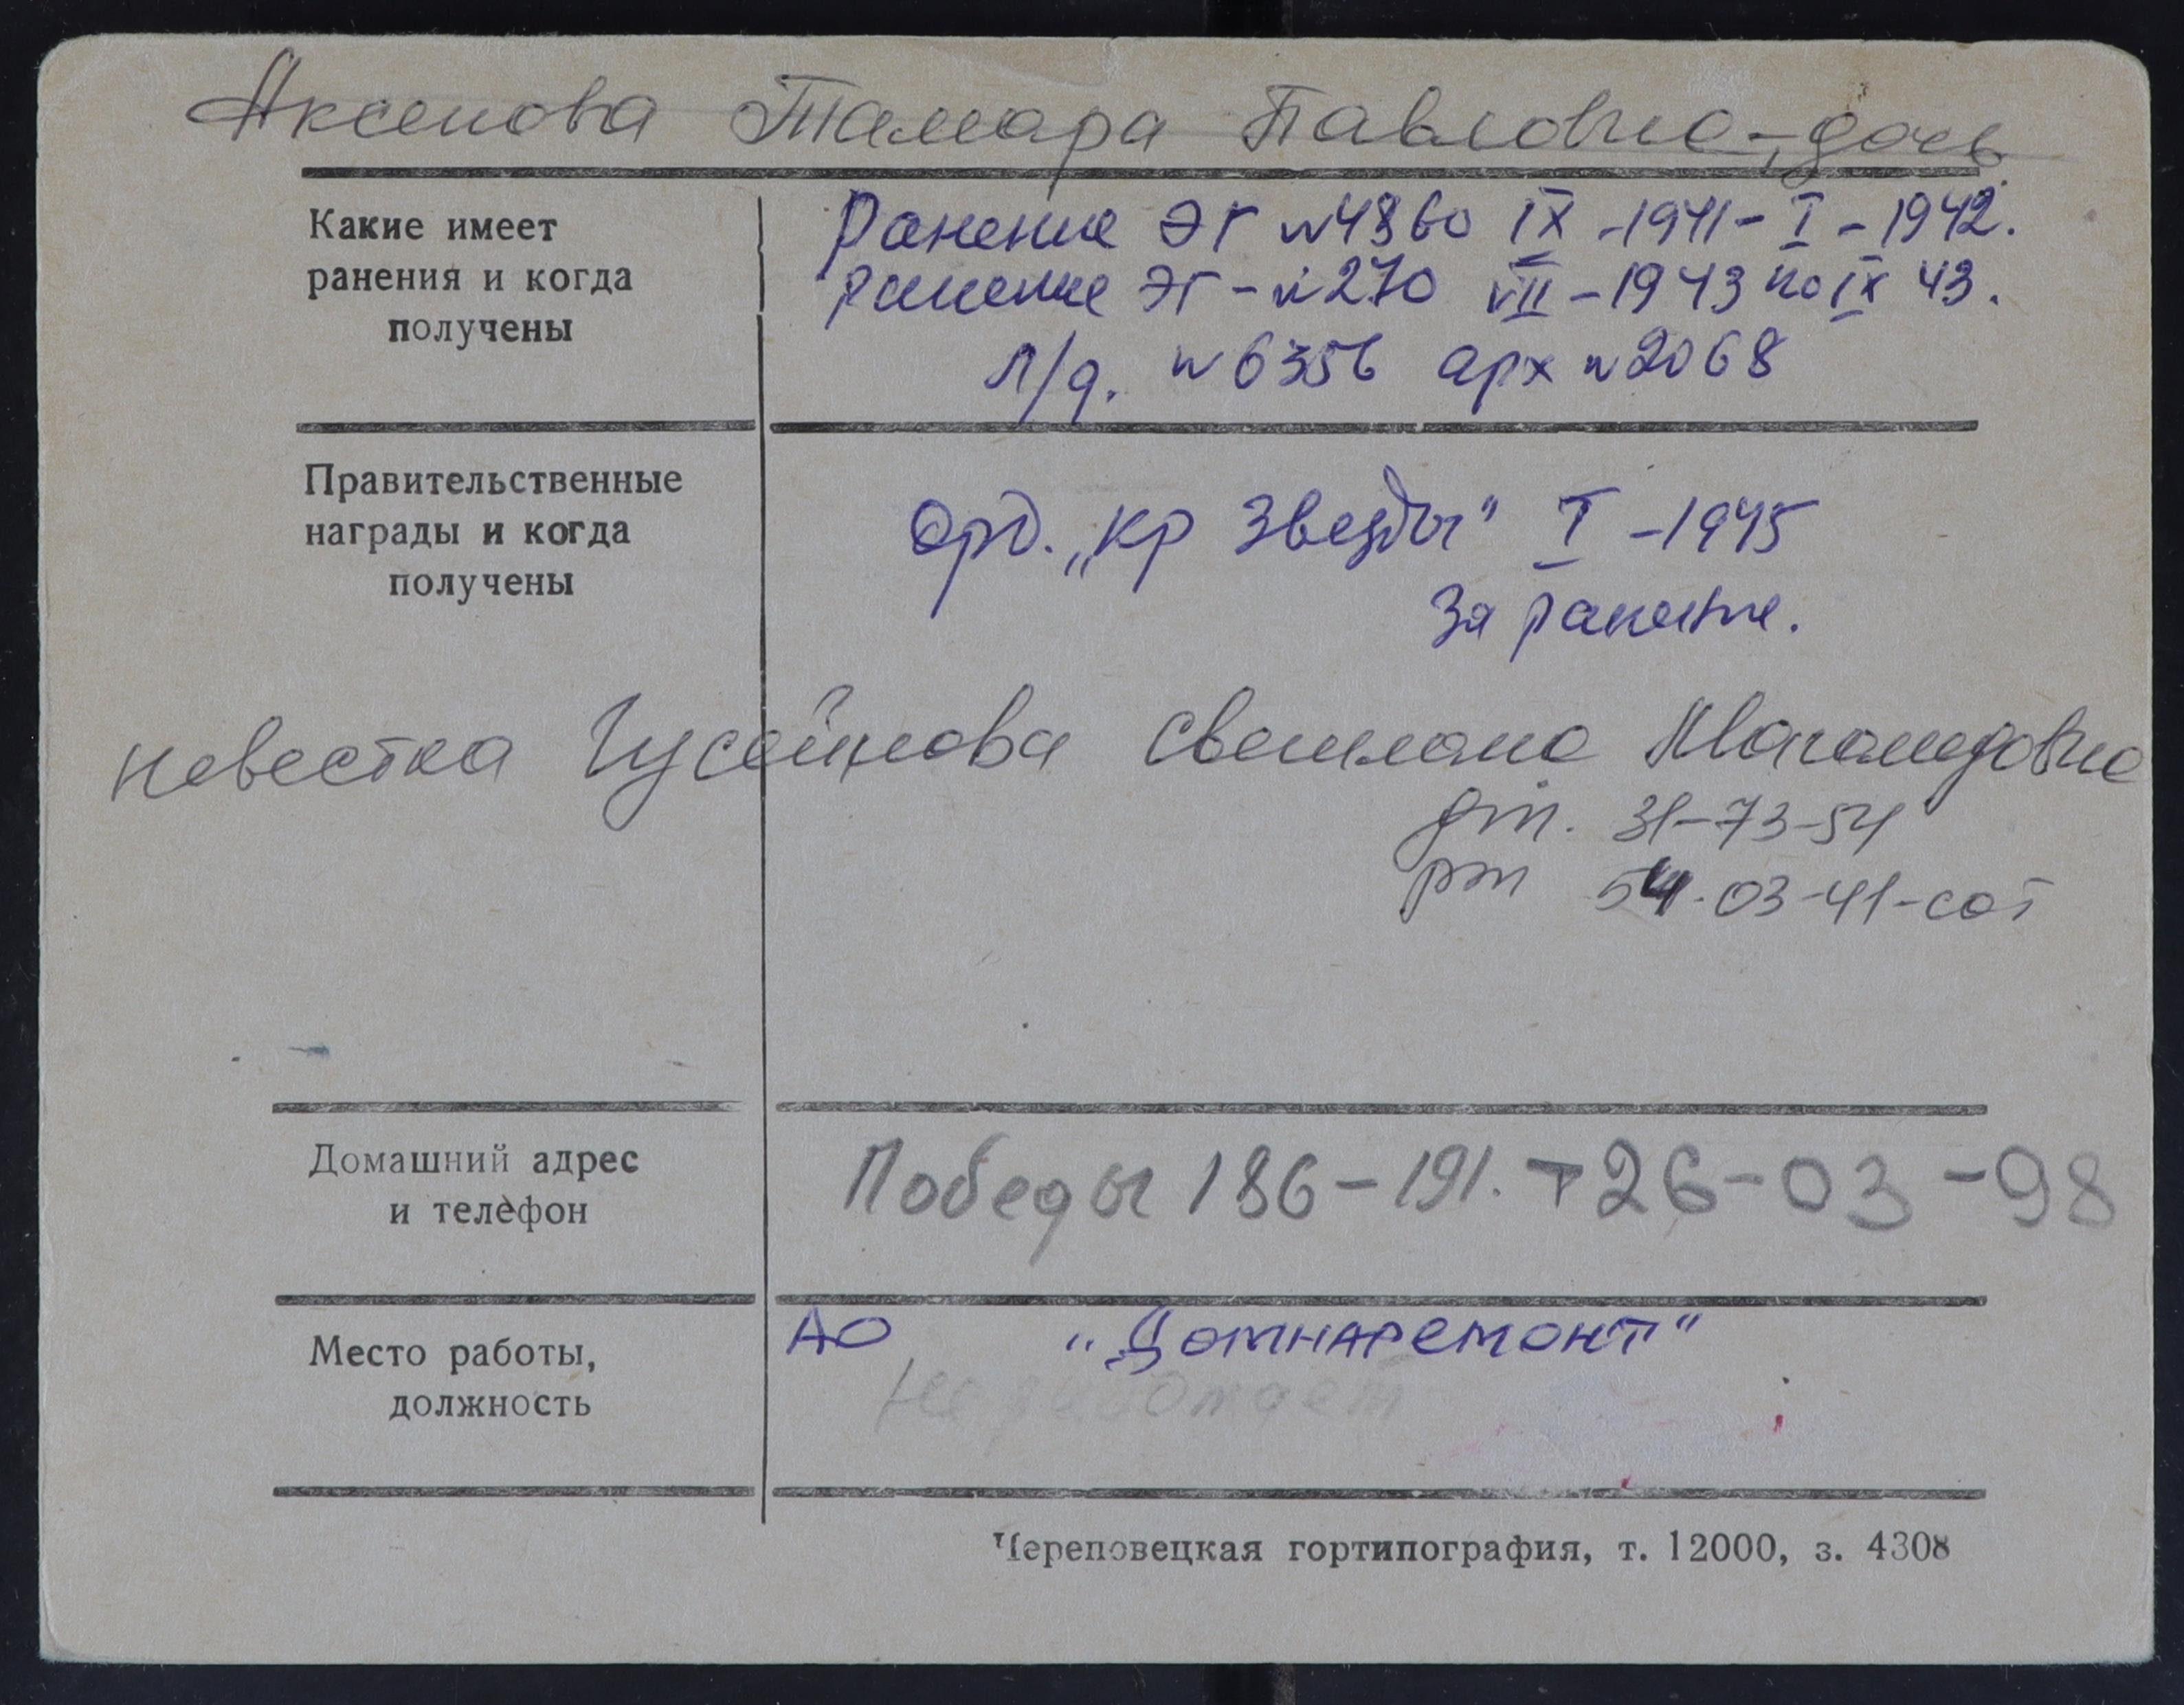 Аксенова Тамара Павловна - дочь
Какие имеет
ранения и когда
получены
Ранение ЭГ №4860 IX -1941 - I - 1942.
ранение ЭГ - №270 VII - 1943 по IX 43.
л/д. №6356 арх №2068
Правительственные
награды и когда
получены
Орд. „Кр Звезды" I - 1945
За ранение.
невестка Гусейнова Светлана Магомедовна
дт. 31-73-54
рт 54-03-41-сот
Домашний адрес
и телефон
Победы 186 - 191. т 26-03-98
Место работы,
должность
АО "Домнаремонт"
Не работает
Череповецкая гортипография, т. 12000, з. 4308